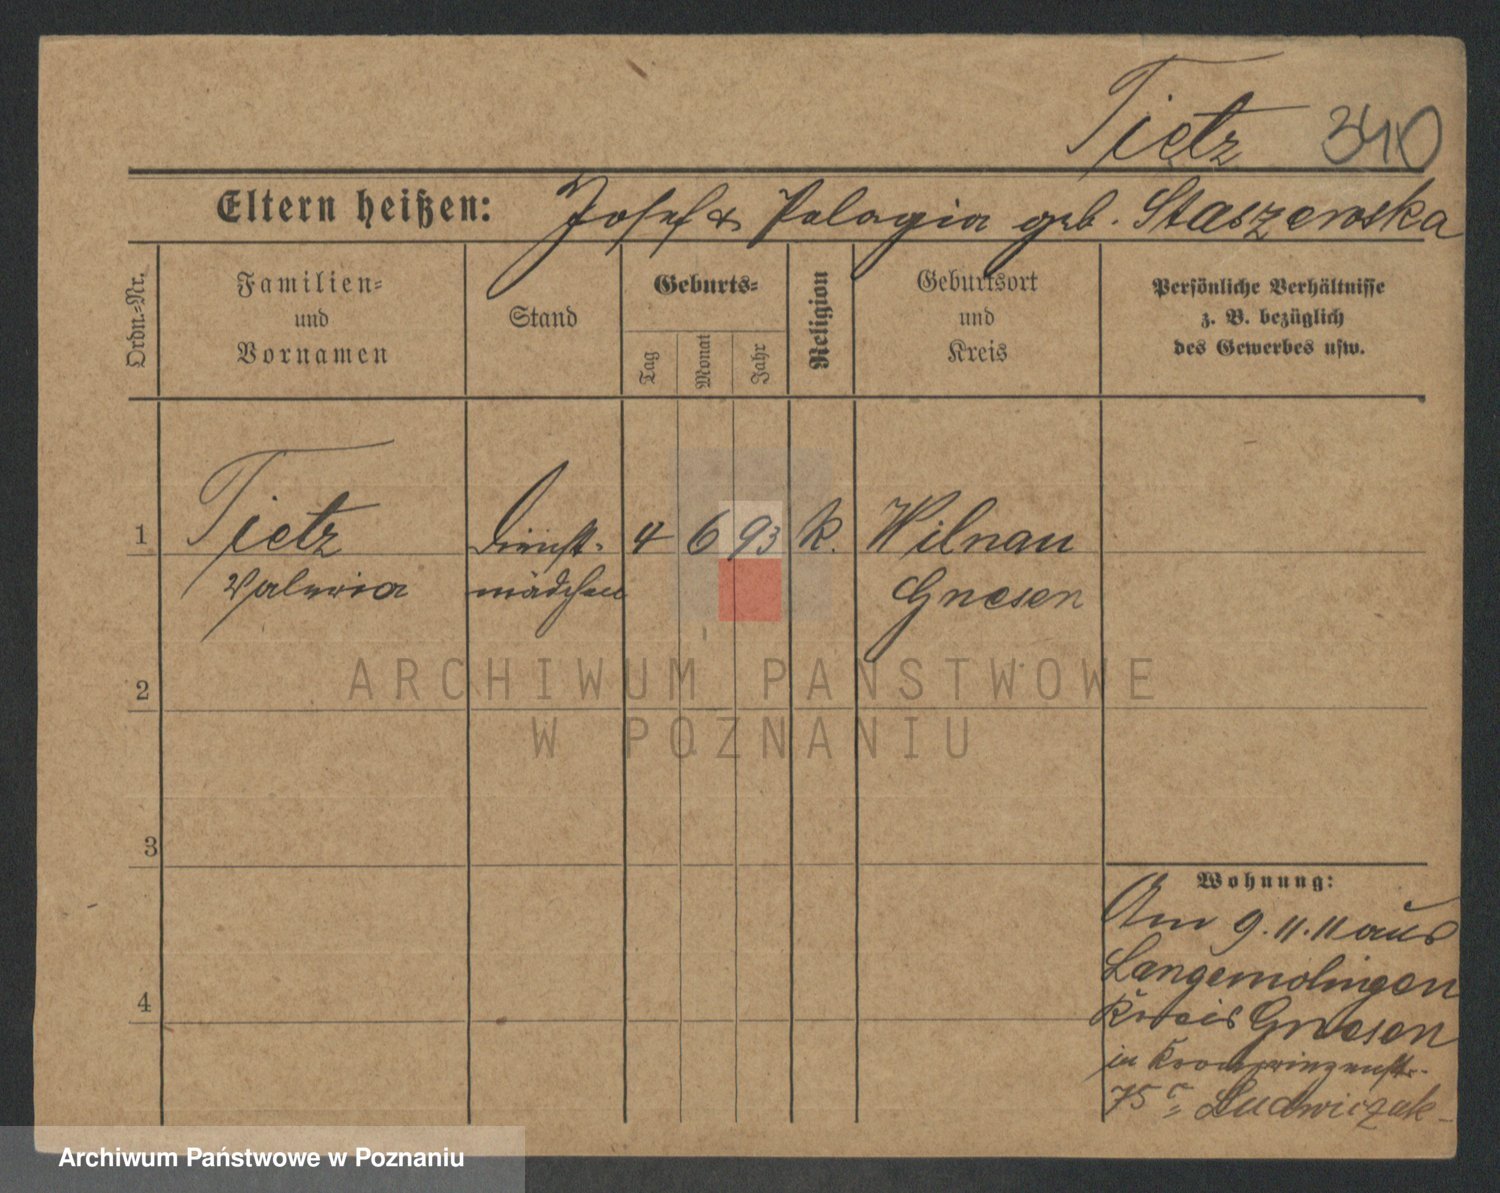 Tietz 340
Eltern heißen: Josef & Pelagia geb. Staszewska
Ordn.-Nr.
Familien-
und
Vornamen
Stand
Geburts-
Tag
Monat
Jahr
Religion
Geburtsort
und
Kreis
Persönliche Verhältnisse
z. B. bezüglich
des Gewerbes usw.
1 Tietz Dienst- 4 6 93 k. Wilnau
Valeria mädchen Gnesen
ARCHIWUM PAŃSTWOWE
W POZNANIU
2
3
4
Wohnung:
Am 9.11.11 aus
Kreis Gnesen
in Kronprinzenstr.
75 Ludwiczak
Archiwum Państwowe w Poznaniu